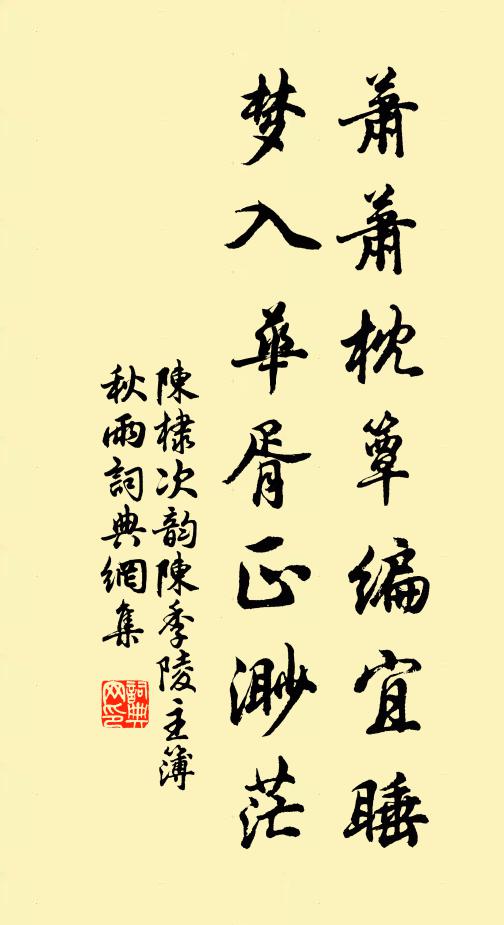 蕭蕭枕簟編宜睡
梦入華胥正渺茫
陳棣次韵陳季陵主簿
秋雨詞典網集
詞典
网印